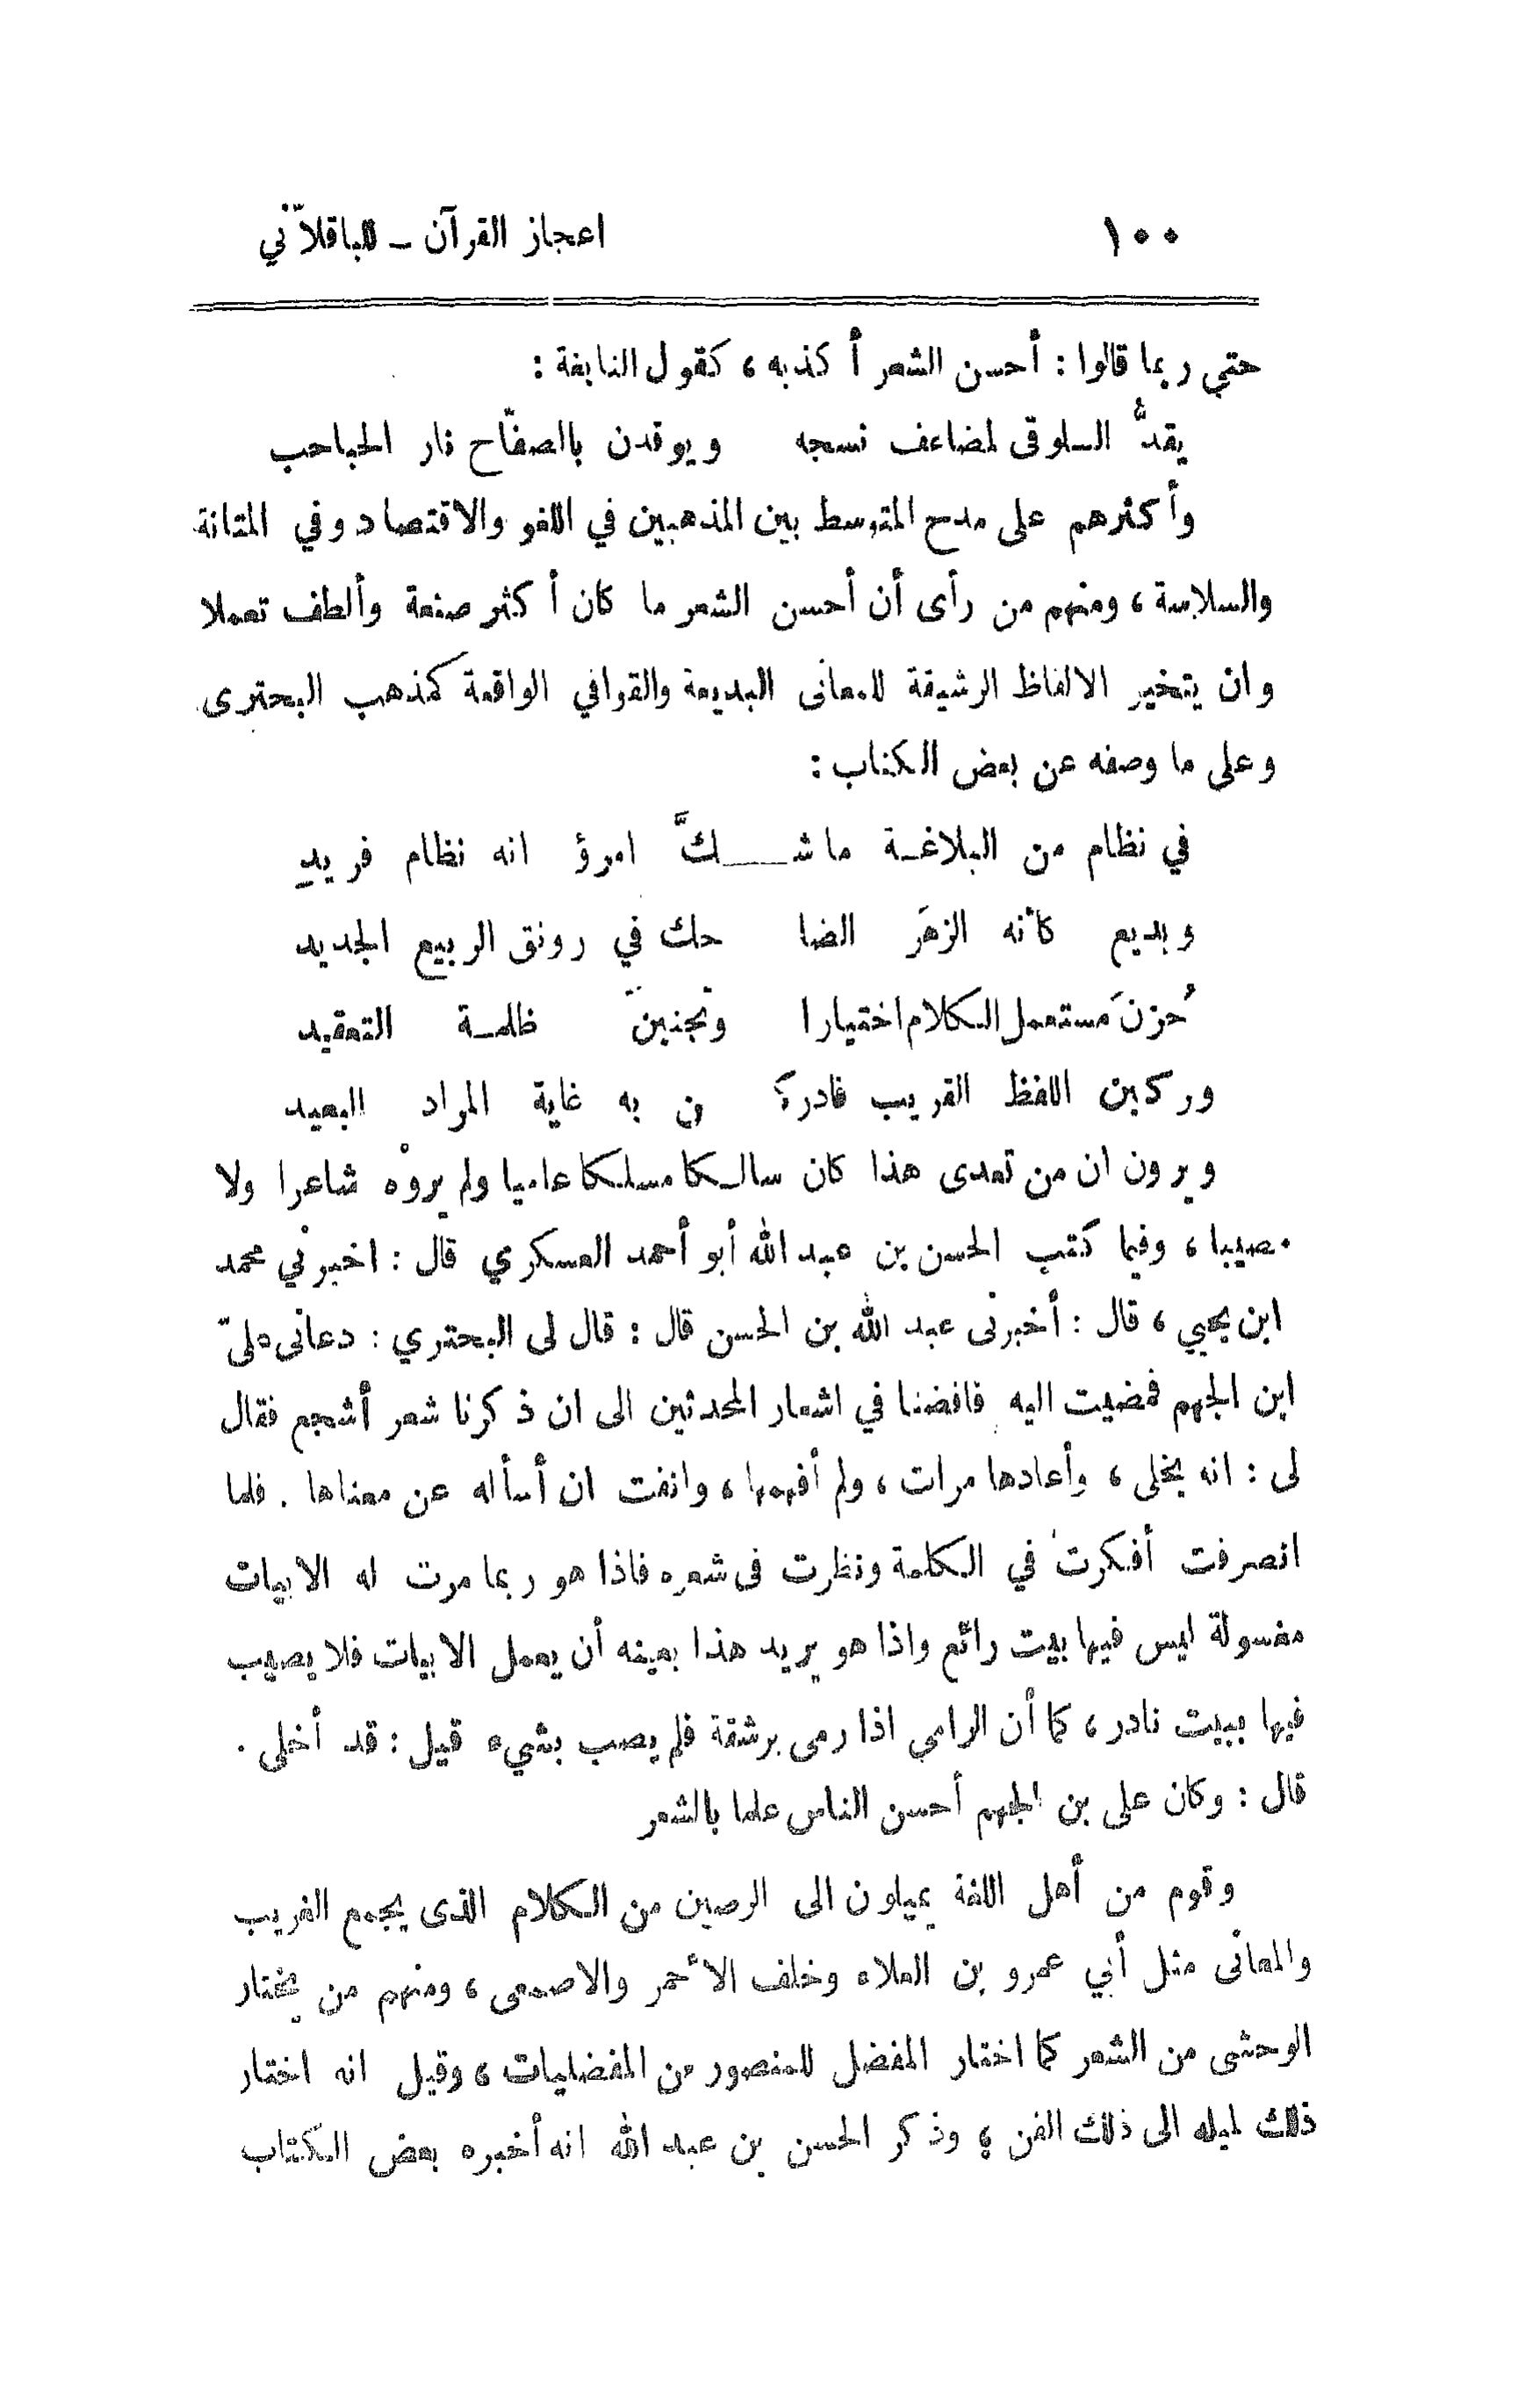 ١٠٠ اعجاز القرآن ــ للباقلاّني
حتي ربما قالوا : أحسن الشعر أكذبه ، كقول النابغة :
يقدُّ السلوقى لمضاعف نسجه ويوقدن بالصفّاح نار الحباحب
وأكثرهم على مدح المتوسط بين المذهبين في اللغو والاقتصاد وفي المتانة
والسلاسة ، ومنهم من رأى أن أحسن الشعر ما كان أكثر صنعة وألطف تعملا
وان يتخير الالفاظ الرشيقة للمعانى البديعة والقوافي الواقعة كمذهب البحترى
وعلى ما وصفه عن بعض الكتاب :
في نظام من البلاغـة ما شـــكَّ امرؤ انه نظام فريدِ
وبديع كأنه الزهَر الضا حك في رونق الربيع الجديد
حُزنَ مستعمل الكلام اختيارا وتجنبنَ ظلمـة التعقيد
وركبن اللفظ القريب فادرك ن به غاية المراد البعيد
ويرون ان من تعدى هذا كان سالكا مسلكا عاميا ولم يروْه شاعرا ولا
مصيبا ، وفيما كتب الحسن بن عبد الله أبو أحمد العسكري قال : اخبرني محمد
ابن يحيي ، قال : أخبرنى عبد الله بن الحسن قال : قال لى البحتري : دعانى علىّ
ابن الجهم فمضيت اليه فافضنا في اشعار المحدثين الى ان ذكرنا شعر أشجع فقال
لى : انه يخلى ، وأعادها مرات ، ولم أفهمها ، وانفت ان أسأله عن معناها . فلما
انصرفت أفكرت في الكلمة ونظرت فى شعره فاذا هو ربما مرت له الابيات
مغسولة ليس فيها بيت رائع واذا هو يريد هذا بعينه أن يعمل الابيات فلا يصيب
فيها ببيت نادر ، كما أن الرامي اذا رمى برشقة فلم يصب بشيء قيل : قد أخلى .
قال : وكان على بن الجهم أحسن الناس علما بالشعر
وقوم من أهل اللغة يميلون الى الرصين من الكلام الذى يجمع الغريب
والمعانى مثل أبي عمرو بن العلاء وخلف الأحمر والاصمعى ، ومنهم من يختار
الوحشى من الشعر كما اختار المفضل للمنصور من المفضليات ، وقيل انه اختار
ذلك لميله الى ذلك الفن ؛ وذكر الحسن بن عبد الله انه أخبره بعض الكتاب